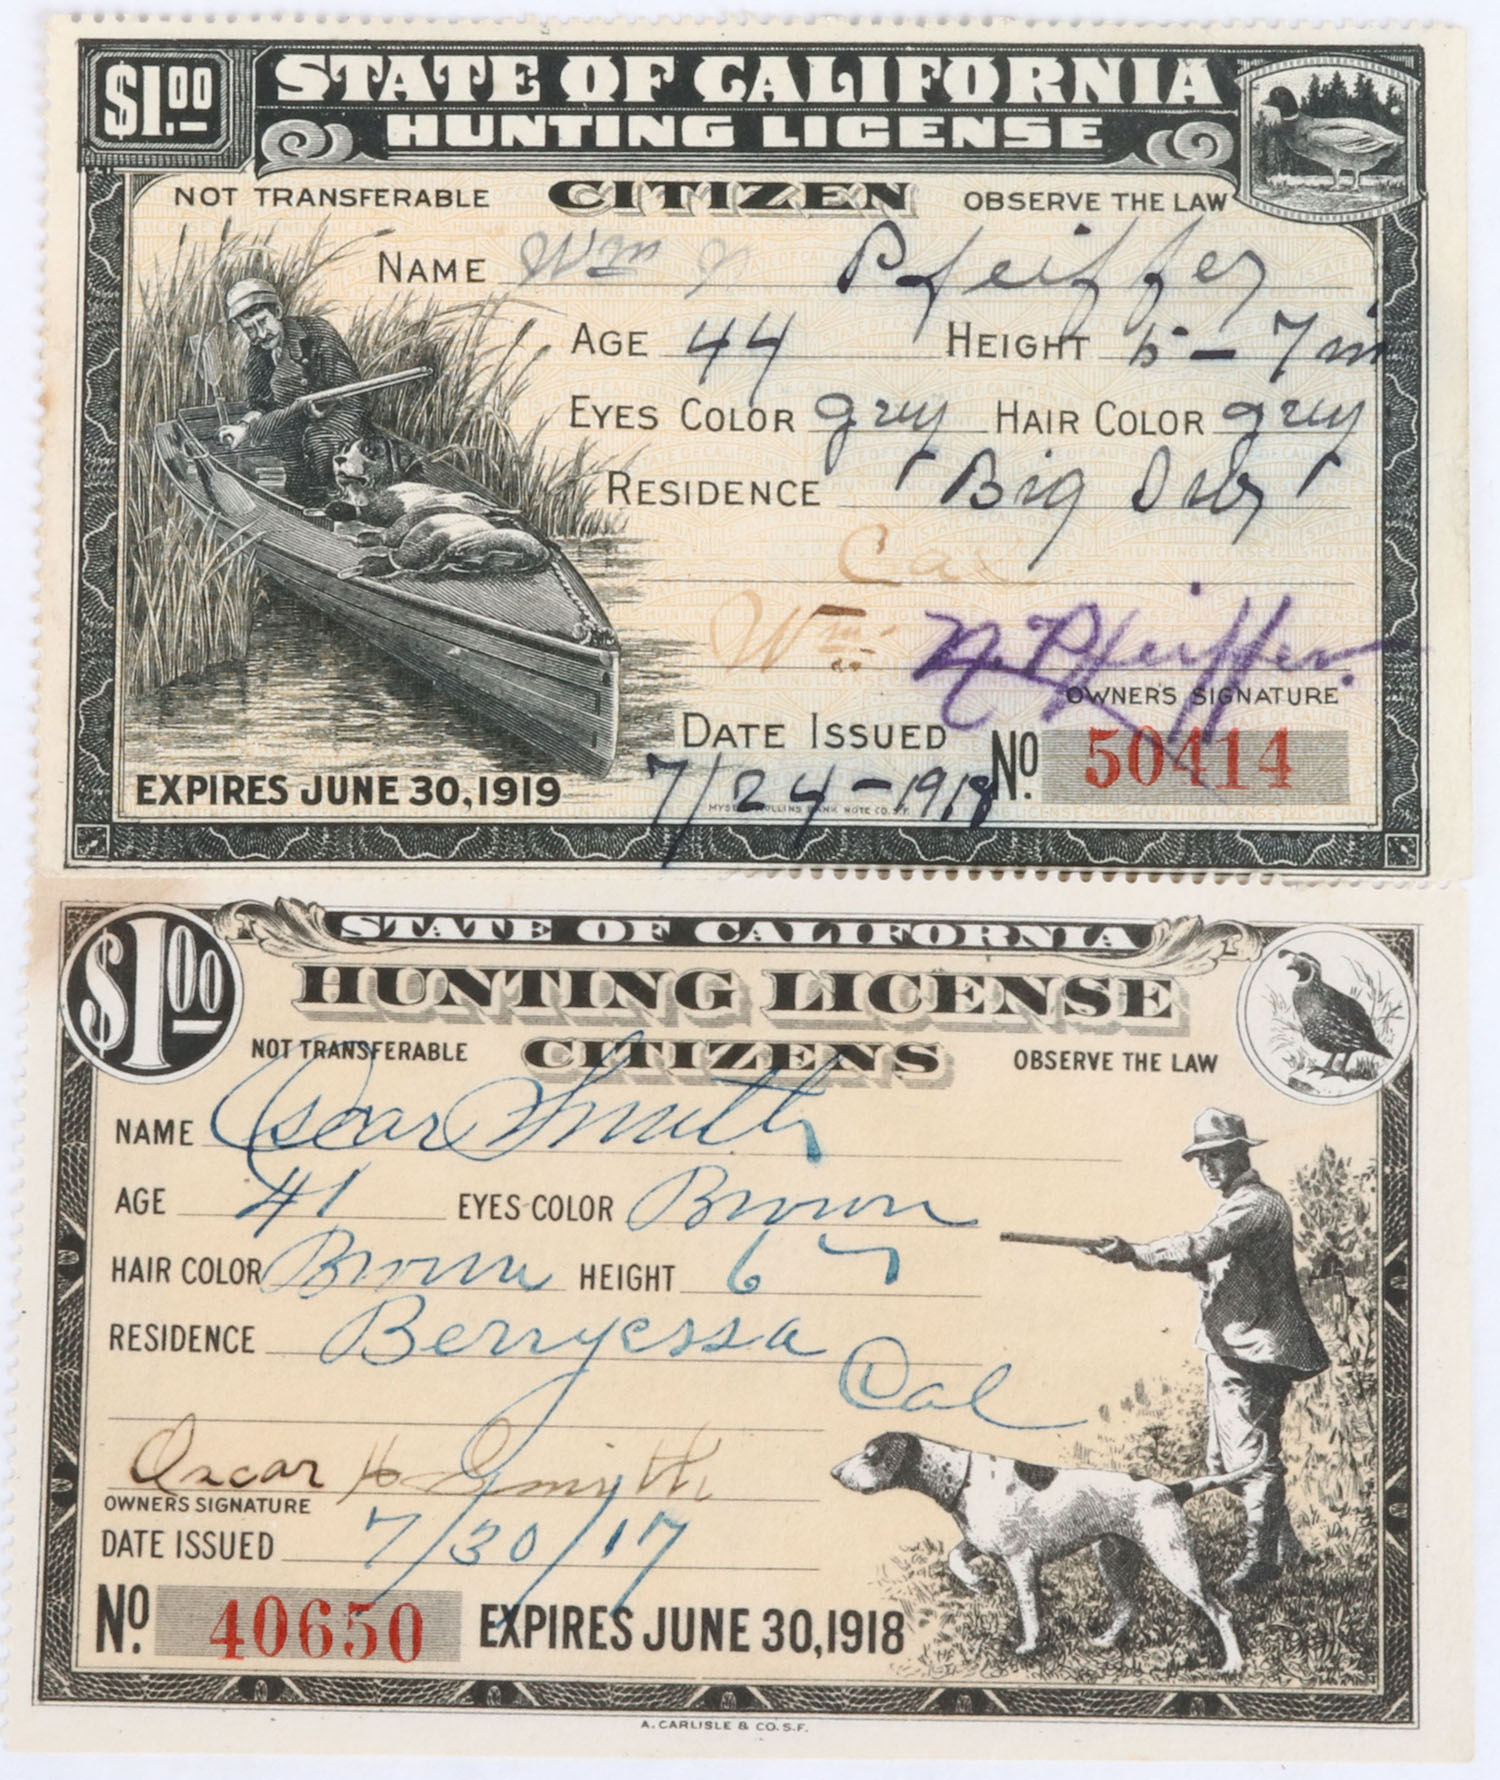 $1.00
STATE OF CALIFORNIA
HUNTING LICENSE
NOT TRANSFERABLE CITIZEN OBSERVE THE LAW
NAME Wm Pfeiffer
AGE 44 HEIGHT 5-7 in
EYES COLOR grey HAIR COLOR grey
RESIDENCE "Big Sur"
Cal
Wm. N. Pfeiffer.
OWNERS SIGNATURE
DATE ISSUED 7/24-1918
No. 50414
EXPIRES JUNE 30, 1919
$1.00
STATE OF CALIFORNIA
HUNTING LICENSE
NOT TRANSFERABLE CITIZENS OBSERVE THE LAW
NAME Oscar Smith
AGE 41 EYES COLOR Brown
HAIR COLOR Brown HEIGHT 6
RESIDENCE Berryessa
Cal
Oscar H Smyth
OWNERS SIGNATURE
DATE ISSUED 7/30/17
No. 40650 EXPIRES JUNE 30, 1918
A. CARLISLE & CO. S.F.